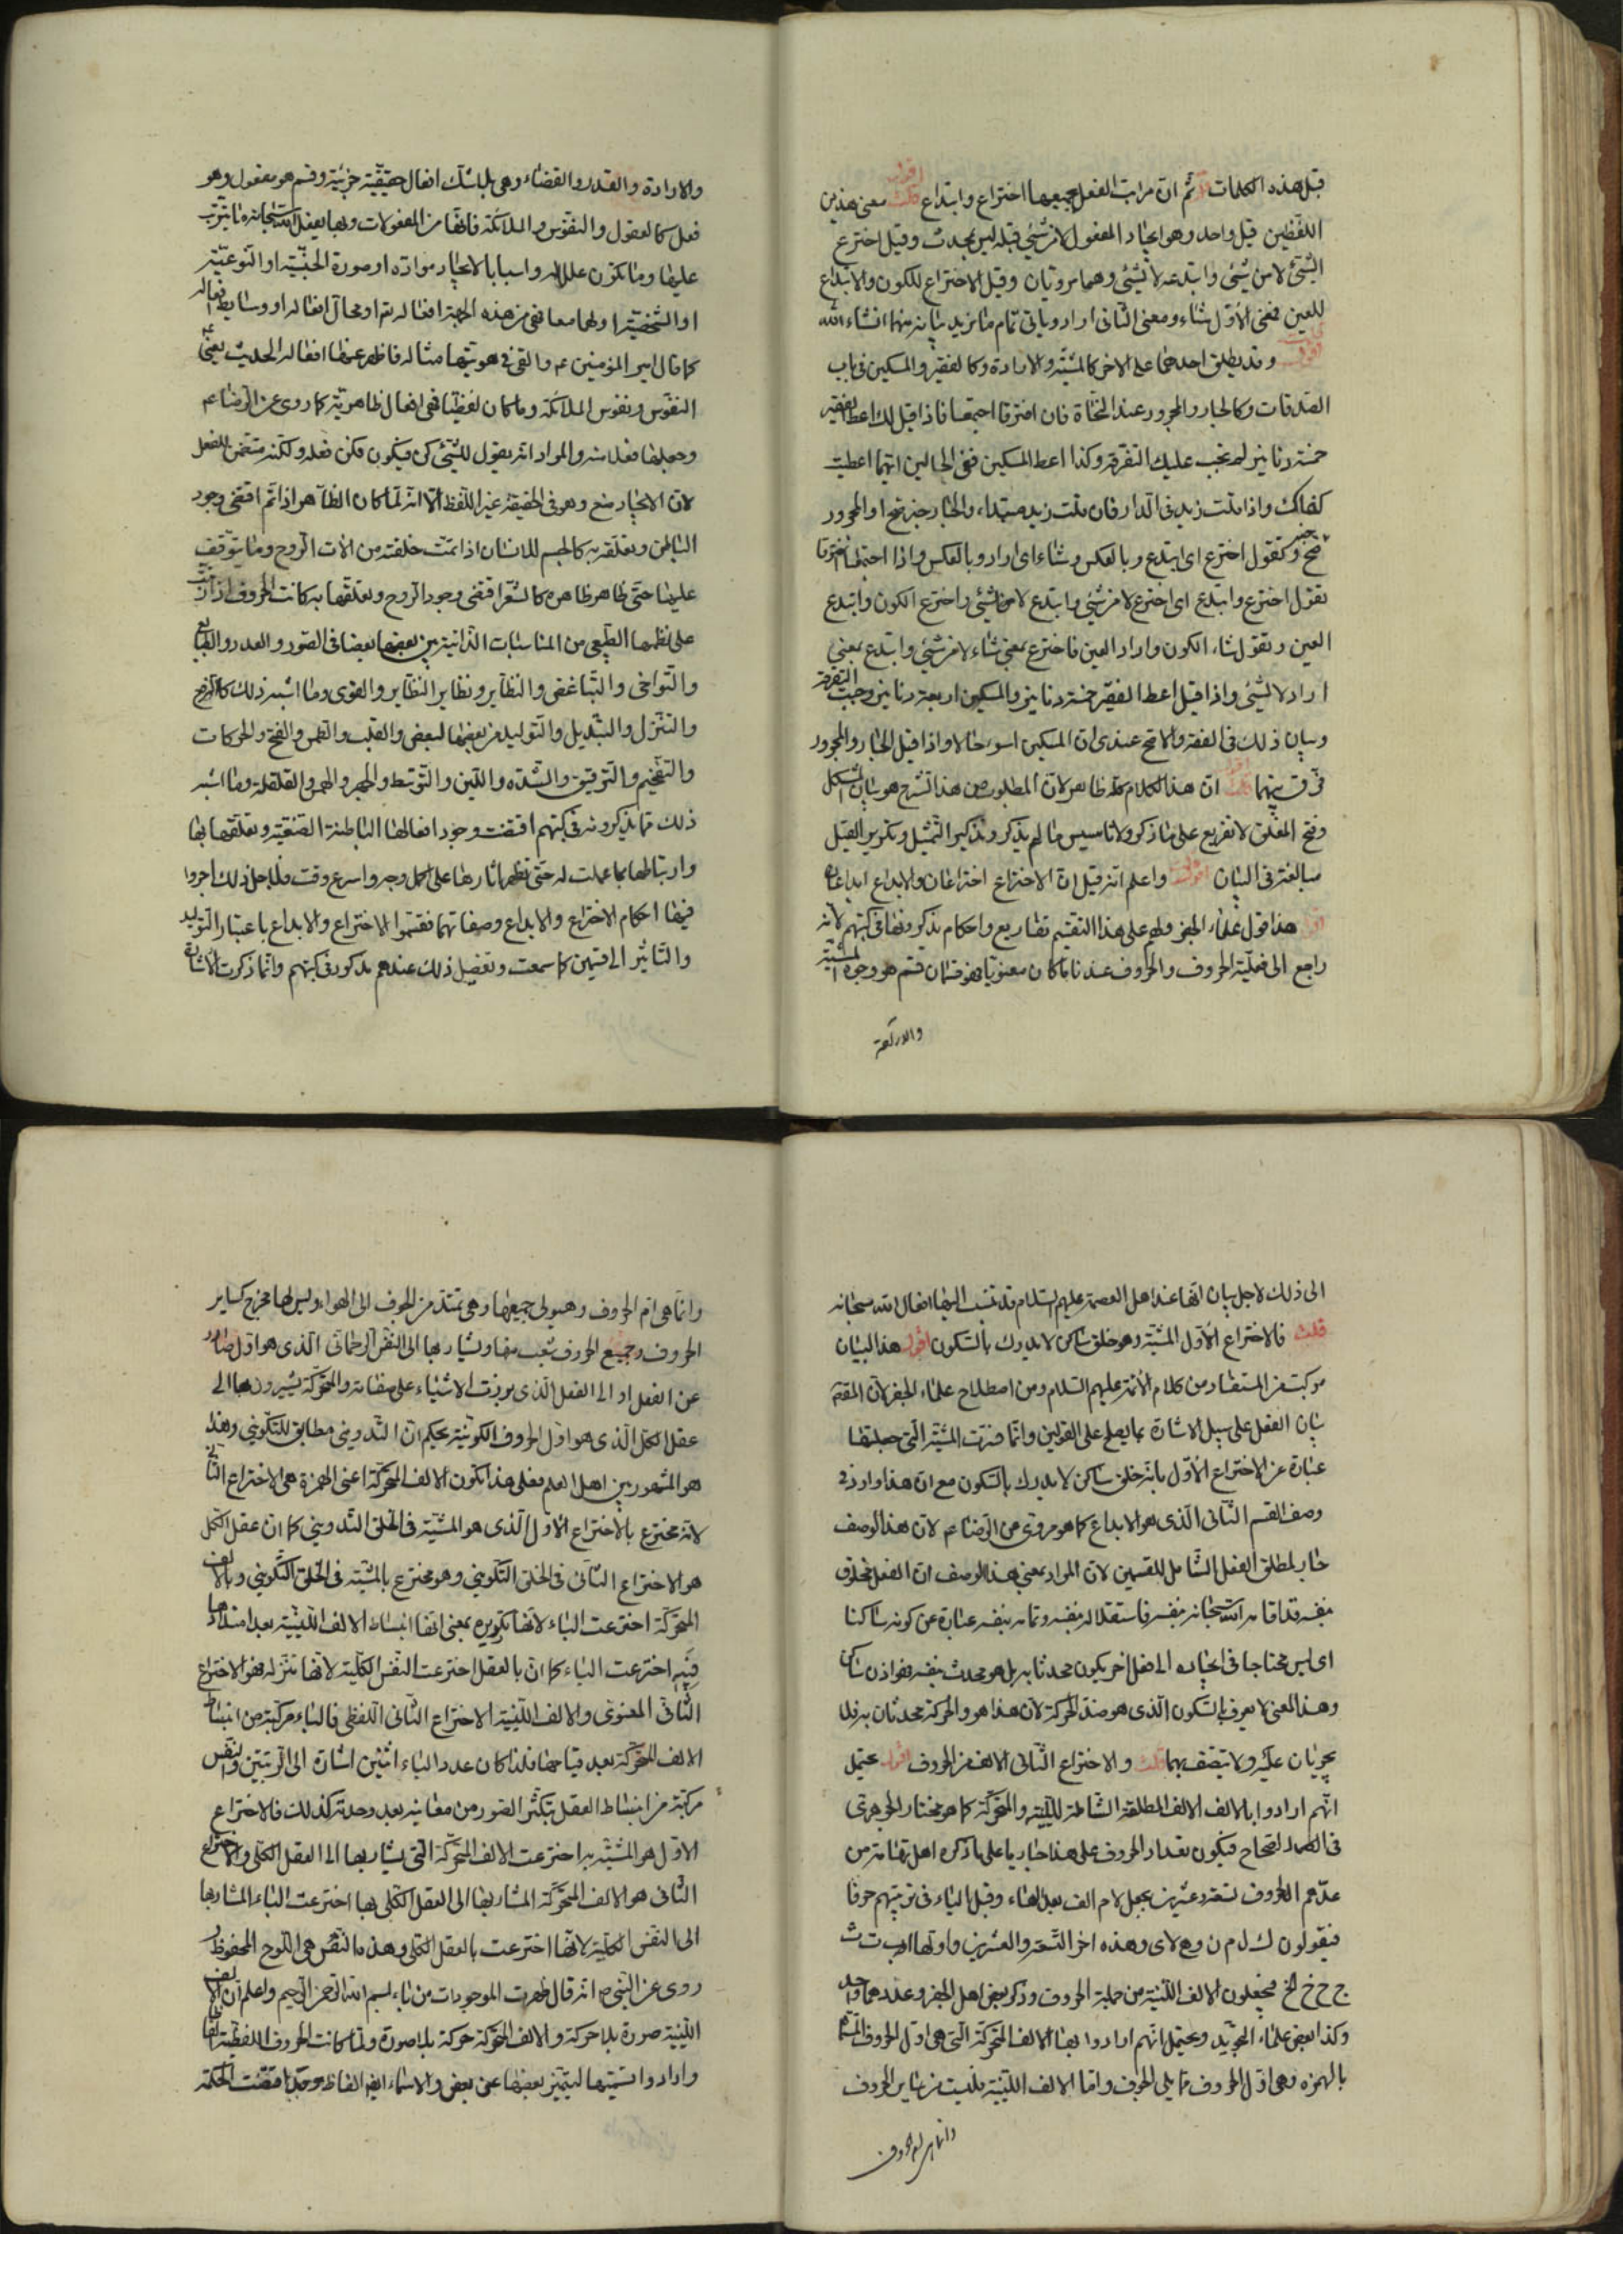 قبل هذه الكلمات قلت ثم ان مراتب الفعل بجميعها اختراع وابتداع اقول قلت معنى هذين
اللفظين قيل واحد وهو ايجاد المفعول لا من شيئ قبله ليس بمحدث وقيل اخترع
الشيئ لا من شيئ وابتدعه لا لشيئ وهما مرويان وقيل الاختراع للكون والابتداع
للعين فمعنى الاول شاء ومعنى الثانى اراد وياتى تمام ما نريد بيانه منهما انشاء الله
اقول وقد يطلق احدهما على الاخر كالمشية والارادة وكالفقير والمسكين فى باب
الصدقات وكالجار والمجرور عند النحاة فان افترقا اجتمعا فاذا قيل لك اعط الفقير
خمسة دنانير لم تجب عليك التفرقة وكذا اعط المسكين ففى الحالين ايهما اعطيت
كفاك واذا قلت زيد فى الدار فان قلت زيد مبتداء والجار خبره صح او المجرور
خبره صح وكقول اخترع اى ابتدع وبالعكس وشاء اى اراد وبالعكس واذا اجتمعا افترقا
تقول اخترع وابتدع اى اخترع لا من شيئ وابتدع لا من شيئ واخترع الكون وابتدع
العين وتقول شاء الكون واراد العين فاخترع بمعنى شاء لا من شيئ وابتدع بمعنى
اراد لا لشيئ واذا قيل اعط الفقير خمسة دنانير والمسكين اربعة دنانير وجبت التفرقة
وبيان ذلك فى الفقه والاصح عندى ان المسكين اسوء حالا واذا قيل الجار والمجرور
فرق بينهما اقول قلت ان هذا الكلام كله ظاهر لان المطلوب من هذا الشرح هو بيان المشكل
وفتح المغلق لا تفريع على ما ذكر ولا تاسيس ما لم يذكر وتذكير التمثيل وتكرير القيل
مبالغة فى البيان اقول واعلم انه قيل ان الاختراع اختراعان والابداع ابداعان
اقول هذا قول علماء الجفر ولهم على هذا التقسيم تفاريع واحكام يذكرونها فى كتبهم لانه
راجع الى فعلية الحروف والحروف عندنا ما كان معنويا فهو قسمان قسم هو وجوه المشية
والارادة
والارادة والقدر والقضاء وهى بلا شك افعال حقيقية جزئية وقسم هو مفعول وهو
فعل كالعقول والنفوس والملائكة فانها من المفعولات وبها يفعل الله سبحانه ما يترتب
عليها وما يكون عللا له واسبابا لايجاد مواده او صورة الجنسية او النوعية
او الشخصية اولهما معا فهى من هذه الجهة افعاله تم او محال افعاله او وسايط افعاله
كما قال امير المؤمنين ع والقى فى هويتها مثاله فاظهر عنها افعاله الحديث يعنى ع
النفوس ونفوس الملائكة وما كان لفظيا فهى افعال ظاهرية كما روى عن الرضا ع
وجعلها فعلا منه والمراد انه يقول للشيئ كن فيكون فكن فعله ولكنه متضمن للفعل
لان الايجاد صنع وهو فى الحقيقة غير اللفظ الا انه لما كان الظاهر اذا تم اقتضى وجود
الباطن وتعلقه به كالجسم للانسان اذا تمت خلقته من الات الروح وما يتوقف
عليها حتى ظاهر ظاهره كالشعر اقتضى وجود الروح وتعلقها به كانت الحروف اذا تمت
على نظمها الطبيعى من المناسبات الذاتية بين بعضها بعضا فى الصور والعدد والطبايع
والتواخى والتباغض والنظاير ونظاير النظاير والقوى وما اشبه ذلك كالترفع
والتنزل والتبديل والتوليد من بعضها لبعض والقلب والطمس والفتح والحركات
والتفخيم والترقيق والشدة واللين والتوسط والجهر والهمس والقلقلة وما اشبه
ذلك مما يذكرونه فى كتبهم اقتضت وجود افعالها الباطنة الصنعية وتعلقها بها
وارتباطها بما عملت له حتى تظهر اثارها على اكمل وجه واسرع وقت فلاجل ذلك اجروا
فيها احكام الاختراع والابداع وصفاتهما فقسموا الاختراع والابداع باعتبار التوليد
والتاثير الى قسمين كما سمعت وتفصيل ذلك عندهم مذكور فى كتبهم وانما ذكرت الاشارة
الى ذلك لاجل بيان انها عند اهل العصمة عليهم السلام قد تنسب اليها افعال الله سبحانه
قلت فالاختراع الاول المشية وهو خلق ساكن لا يدرك بالسكون اقول هذا البيان
مركب من المستفاد من كلام الائمة عليهم السلام ومن اصطلاح علماء الجفر لان المقصد
بيان الفعل على سبيل الاشارة بما يصلح على القولين وانما فسرت المشية التى جعلتها
عبارة عن الاختراع الاول بانه خلق ساكن لا يدرك بالسكون مع ان هذا وارد فى
وصف القسم الثانى الذى هو الابداع كما هو مروى عن الرضا ع لان هذا الوصف
جار لمطلق الفعل الشامل للقسمين لان المراد بمعنى هذا الوصف ان الفعل مخلوق
بنفسه قد اقامه الله سبحانه بنفسه فاستقلاله بنفسه وتمامه بنفسه عبارة عن كونه ساكنا
اى ليس محتاجا فى ايجاده الى فعل اخر يكون محدثا به بل هو محدث بنفسه فهو اذن ساكن
وهذا المعنى لا يعرف بالسكون الذى هو ضد الحركة لان هذا هو والحركة محدثان به فلا
يجريان عليه ولا يتصف بهما قلت والاختراع الثانى الالف من الحروف اقول يحتمل
انهم ارادوا بالالف الالف المطلقة الشاملة للينية والمتحركة كما هو مختار الجوهرى
فى الصحاح فيكون تعداد الحروف على هذا جاريا على ما ذكره اهل تهامة من
عدهم الحروف تسعة وعشرين بجعل لام الف بعد الهاء وقبل الياء فى ترتيبهم حرفا
فيقولون ك ل م ن و ه لا ى وهذه اخر التسعة والعشرين واولها ا ب ت ث
ج ح خ الخ فيجعلون الالف اللينية من جملة الحروف وذكر بعض اهل الجفر وعددهما واحد
وكذا بعض علماء التجويد ويحتمل انهم ارادوا بها الالف المتحركة التى هى اول الحروف المسماة
بالهمزه وهى اول الحروف مما يلى الجوف واما الالف اللينية فليست من ساير الحروف
وانما هى ام الحروف
وانما هى ام الحروف وهيولى جميعها وهى تمتد من الجوف الى الهواء وليس لها مخرج كساير
الحروف وجميع الحروف شعب منها ويشار بها الى النفس الرحمانى الذى هو اول صادر
عن الفعل او الى الفعل الذى برزت الاشياء على صفاته والمتحركة يشيرون بها الى
عقل الكل الذى هو اول الحروف الكونية بحكم ان التدوينى مطابق للتكوينى وهذا
هو المشهور بين اهل العلم فعلى هذا تكون الالف المتحركة اعنى الهمزة هى الاختراع الثانى
لانه مخترع بالاختراع الاول الذى هو المشية فى الخلق التدوينى كما ان عقل الكل
هو الاختراع الثانى فى الخلق التكوينى وهو مخترع بالمشية فى الخلق التكوينى وبالالف
المتحركة اخترعت الباء لانها تكويره بمعنى انها انبساط الالف اللينية بعد امتدادها
فبه اخترعت الباء كما ان بالعقل اخترعت النفس الكلية لانها تنزله فهو الاختراع
الثانى المعنوى والالف اللينية الاختراع الثانى اللفظى فالباء مركبة من انبساط
الالف المتحركة بعد قيامها فلذا كان عدد الباء اثنين اشارة الى الرتبتين والنفس
مركبة من انبساط العقل بتكثر الصور من معانيه بعد وحدته كذلك فالاختراع
الاول هو المشية به اخترعت الالف المتحركة التى يشار بها الى العقل الكلى والاختراع
الثانى هو الالف المتحركة المشار بها الى العقل الكلى بها اخترعت الباء المشار بها
الى النفس الكلية لانها اخترعت بالعقل الكلى وهذه النفس هى اللوح المحفوظ
روى عن النبى ص انه قال ظهرت الموجودات من باء بسم الله الرحمن الرحيم واعلم ان الالف
اللينية صورة بلا حركة والالف المتحركة حركة بلا صورة ولما كانت الحروف اللفظية الفاظا
وارادوا تسميتها ليتميز بعضها عن بعض والاسماء ايضا الفاظ اقتضت الحكمة